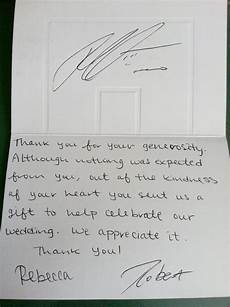 Thank you for your generosity.
Although nothing was expected
from you, out of the kindness
of your heart you sent us a
gift to help celebrate our
wedding. We appreciate it.
Thank you!
Rebecca Robert